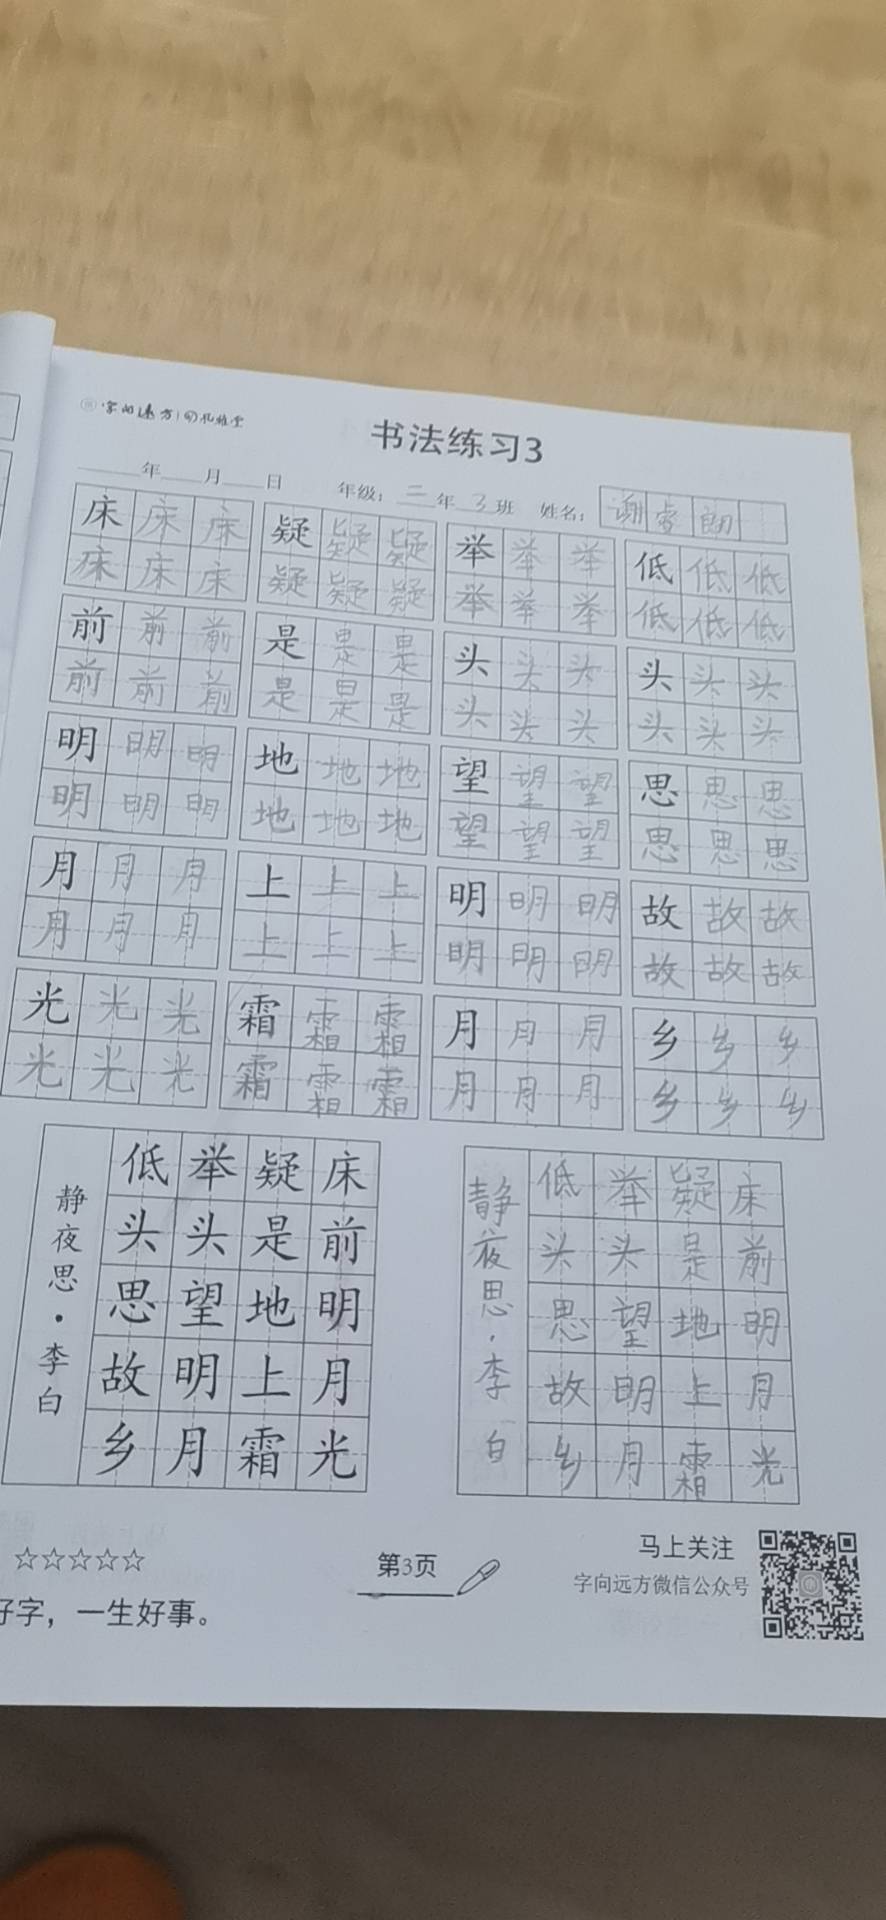 字向远方
书法练习3
年 月 日 年级: 三 年 3 班 姓名: 谢睿朗
床床床 疑疑疑 举举举 低低低
床床床 疑疑疑 举举举 低低低
前前前 是是是 头头头 头头头
前前前 是是是 头头头 头头头
明明明 地地地 望望望 思思思
明明明 地地地 望望望 思思思
月月月 上上上 明明明 故故故
月月月 上上上 明明明 故故故
光光光 霜霜霜 月月月 乡乡乡
光光光 霜霜霜 月月月 乡乡乡
床前明月光
疑是地上霜
举头望明月
低头思故乡
静夜思·李白
床前明月光
疑是地上霜
举头望明月
低头思故乡
静夜思·李白
☆☆☆☆☆
好字，一生好事。
第3页
马上关注
字向远方微信公众号